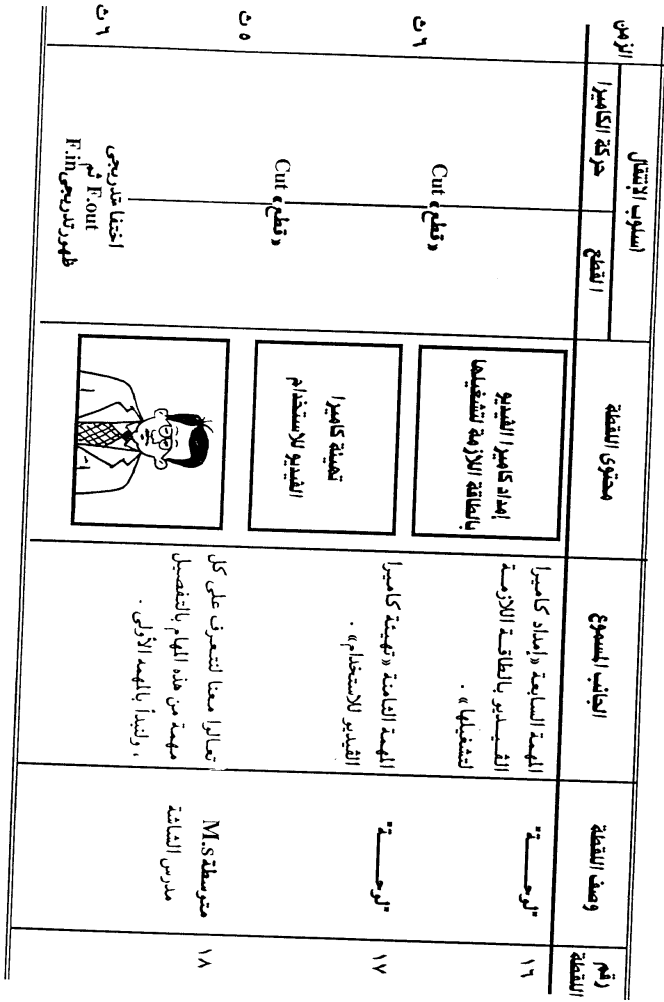 رقم
اللقطة
وصف اللقطة
الجانب المسموع
محتوى اللقطة
اسلوب الإنتقال
القطع
حركة الكاميرا
الزمن
١٦
"لوحـــــة"
المهمة السابعة «إمداد كاميرا
الفـيـديو بالطاقـة اللازمـة
لتشغيلها» .
إمداد كاميرا الفيديو
بالطاقة اللازمة لتشغيلها
Cut «قطع»
٦ ث
١٧
"لوحـــــة"
المهمة الثامنة «تهيئة كاميرا
الفيديو للاستخدام» .
تهيئة كاميرا
الفيديو للاستخدام
Cut «قطع»
٥ ث
١٨
متوسطة M.s
مدرس الشاشة
تعـالوا معنا لنتـعـرف على كل
مهمة من هذه المهام بالتفصيل
، ولنبدأ بالمهمه الأولى .
اختفا تدريجى
F.out ثم
ظهور تدريجى F.in
٦ ث